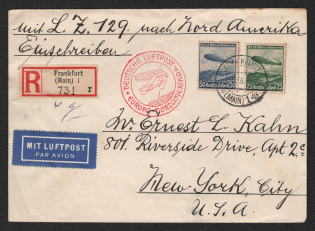 mit L. Z. 129. nach Nord Amerika
Einschreiben
R
Frankfurt
(Main) 1
731 r
DEUTSCHE LUFTPOST
EUROPA NORDAMERIKA
50
75
(MAIN) 1
MIT LUFTPOST
PAR AVION
Mr. Ernest L. Kahn
801. Riverside Drive, Apt 2c
New York, City
U.S.A.